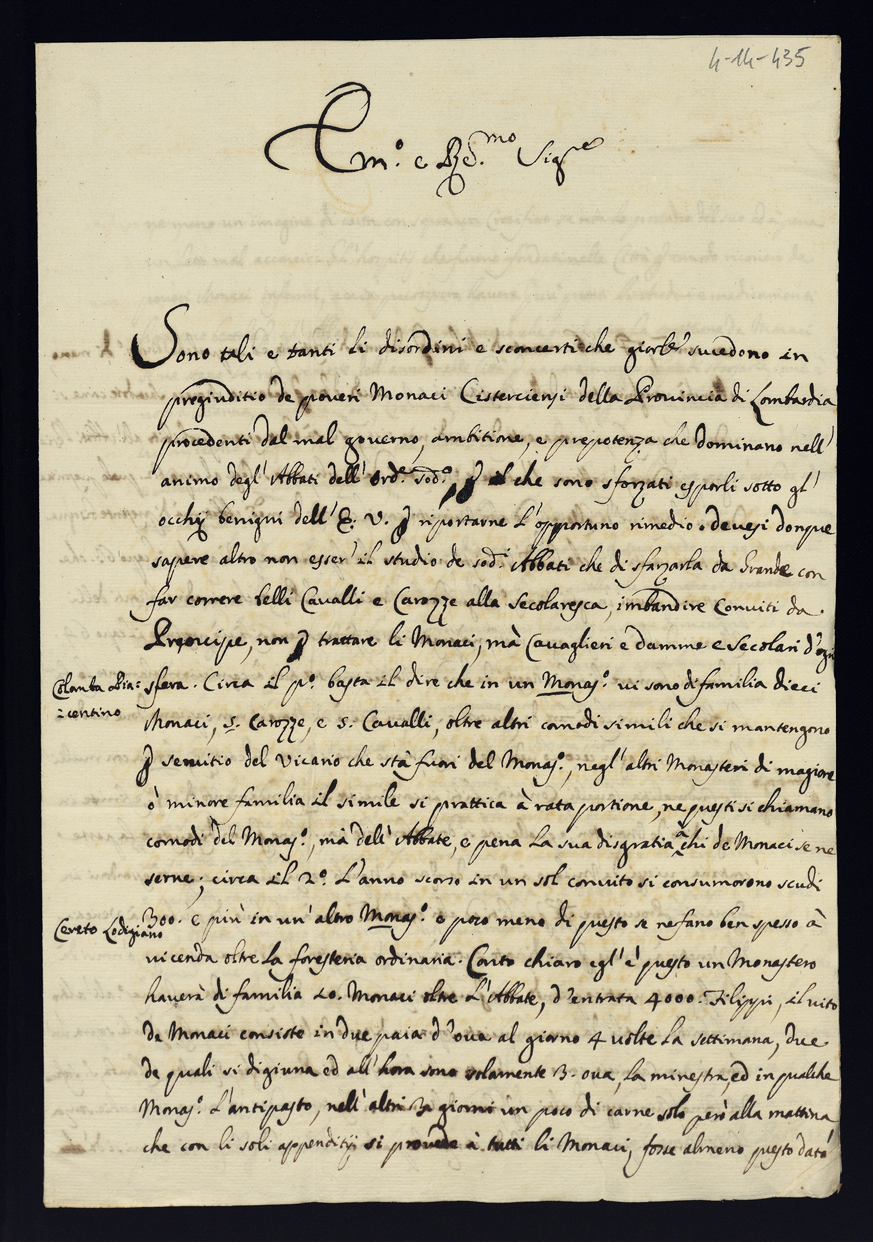 4-14-435
Em.º e Re.mo Sig.re
Sono tali e tanti li disordini e sconcerti che giorl.e sucedono in
pregiuditio de poveri Monaci Cisterciensi della Provincia di Lombardia
procedenti dal mal governo, ambitione, e prepotenza che dominano nell'
animo degl' Abbati dell' Ord.e sod.º, p il che sono sforzati esporli sotto gl'
occhij benigni dell' E. V. p riportarne l'opportuno rimedio. devesi donque
sapere altro non esser' il studio de sod.i Abbati che di sfarzarla da Grande con
far correre belli Cavalli e Carozze alla secolaresca, imbandire Conviti da
Prencipe, non p trattare li Monaci, mà Cavaglieri e damme e secolari d'ogni
Colomba Pia= sfera. Circa il pº. basta il dire che in un Monas.º vi sono di familia dieci
=centino Monaci, 5. Carozze, e 5. Cavalli, oltre altri comodi simili che si mantengono
p servitio del Vicario che stà fuori del Monas.º, negl' altri Monasteri di magiore
ò minore familia il simile si prattica à rata portione, ne questi si chiamano
comodi del Monas.º, mà dell' Abbate, e pena la sua disgratia à chi de Monaci se ne
serve; circa il 2º. L'anno scorso in un sol convito si consumorono scudi
Cereto Lodigiano 300. e più in un' altro Monas.º e poco meno di questo se ne fano ben spesso à
vicenda oltre la foresteria ordinaria. Conto chiaro egl' è questo un Monastero
haverà di familia 10. Monaci oltre l'Abbate, d'entrata 4000. Filippi, il vito
de Monaci consiste in due paia d'ova al giorno 4 volte la settimana, due
de quali si digiuna ed all' hora sono solamente 3. ova, la minestra, ed in qualche
Monas.º l'antipasto, nell' altri 3 giorni un poco di carne solo però alla mattina
che con li soli appenditij si provede à tutti li Monaci, fosse almeno questo dato